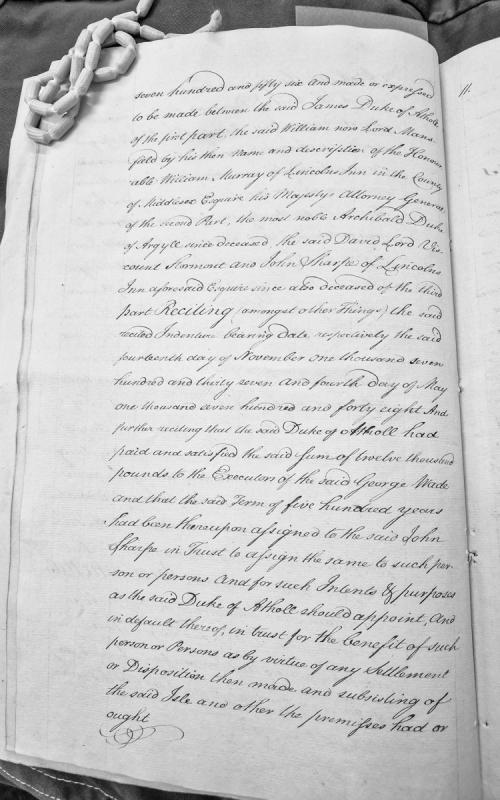 seven hundred and fifty six And made or expressed
to be made between the said James Duke of Atholl
of the first part, the said William now Lord Mans
field by his then Name and description of the Honour
able William Murray of Lincolns Inn in the County
of Middlesex Esquire his Majestys Attorney General
of the second Part, the most noble Archibald Duke
of Argyll since deceased, the said David Lord Vis
count Stormont and John Sharpe of Lincolns
Inn aforesaid Esquire since also deceased of the third
part Reciting (amongst other Things) the said
recited Indenture bearing Date respectively the said
fourteenth day of November one thousand seven
hundred and thirty seven and fourth day of May
one thousand seven hundred and forty eight And
further reciting that the said Duke of Atholl had
paid and satisfied the said sum of twelve thousand
pounds to the Executors of the said George Wade
and that the said Term of five hundred years
had been thereupon assigned to the said John
Sharpe in Trust to assign the same to such per-
son or persons And for such Intents & purposes
as the said Duke of Atholl should appoint, And
in default thereof, in trust for the benefit of such
person or Persons as by virtue of any Settlement
or Disposition then made and subsisting of
the said Isle and other the premisses had or
ought
11.